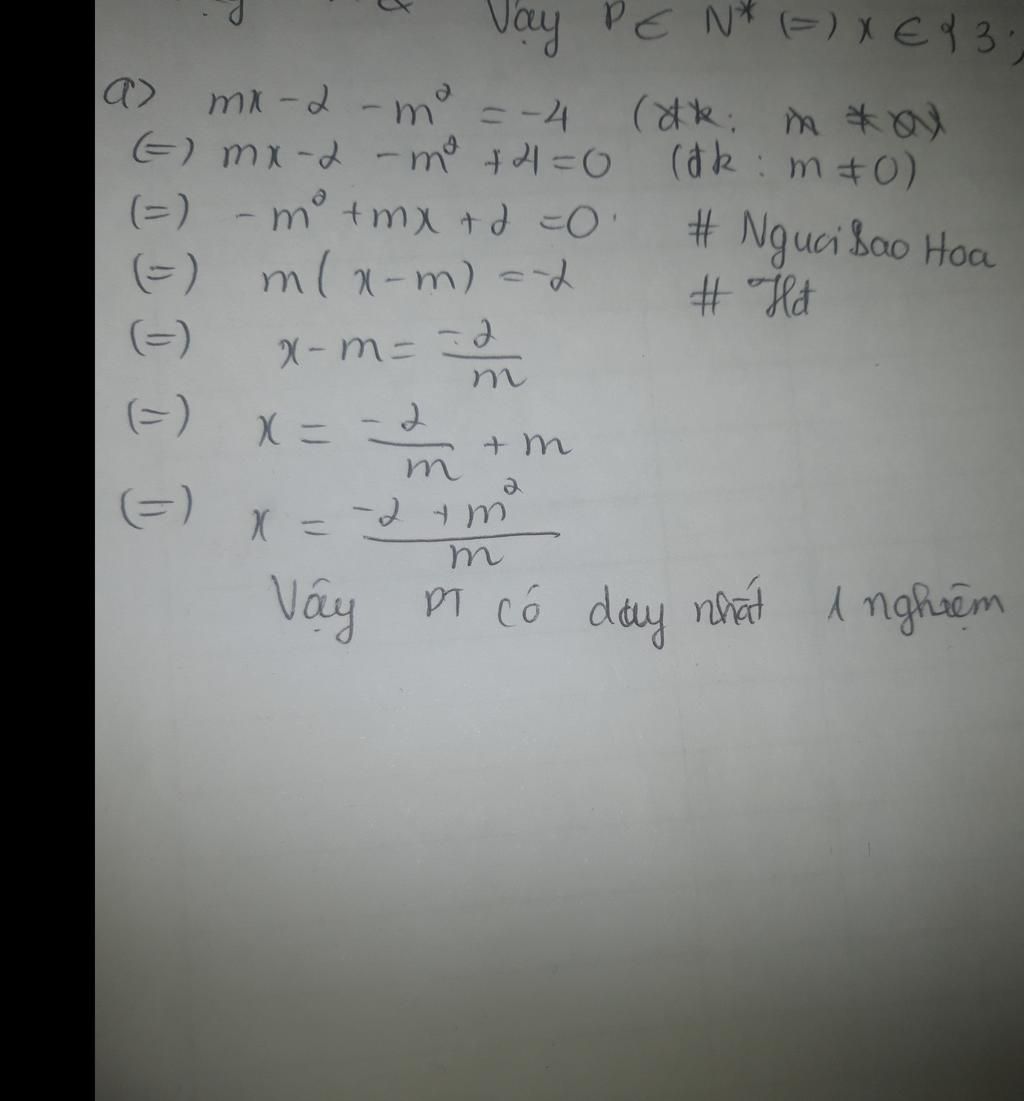 Vậy P ∈ N* (=) x ∈ { 3 ;
a) mx - 2 - m² = -4
(=) mx - 2 - m² + 4 = 0 (đk : m ≠ 0)
(=) - m² + mx + 2 = 0 # NguciSao Hoa
(=) m ( x - m) = -2 # Hđ
(=) x - m = -2/m
(=) x = -2/m + m
(=) x = (-2 + m²)/m
Vậy PT có day nhất 1 nghiệm